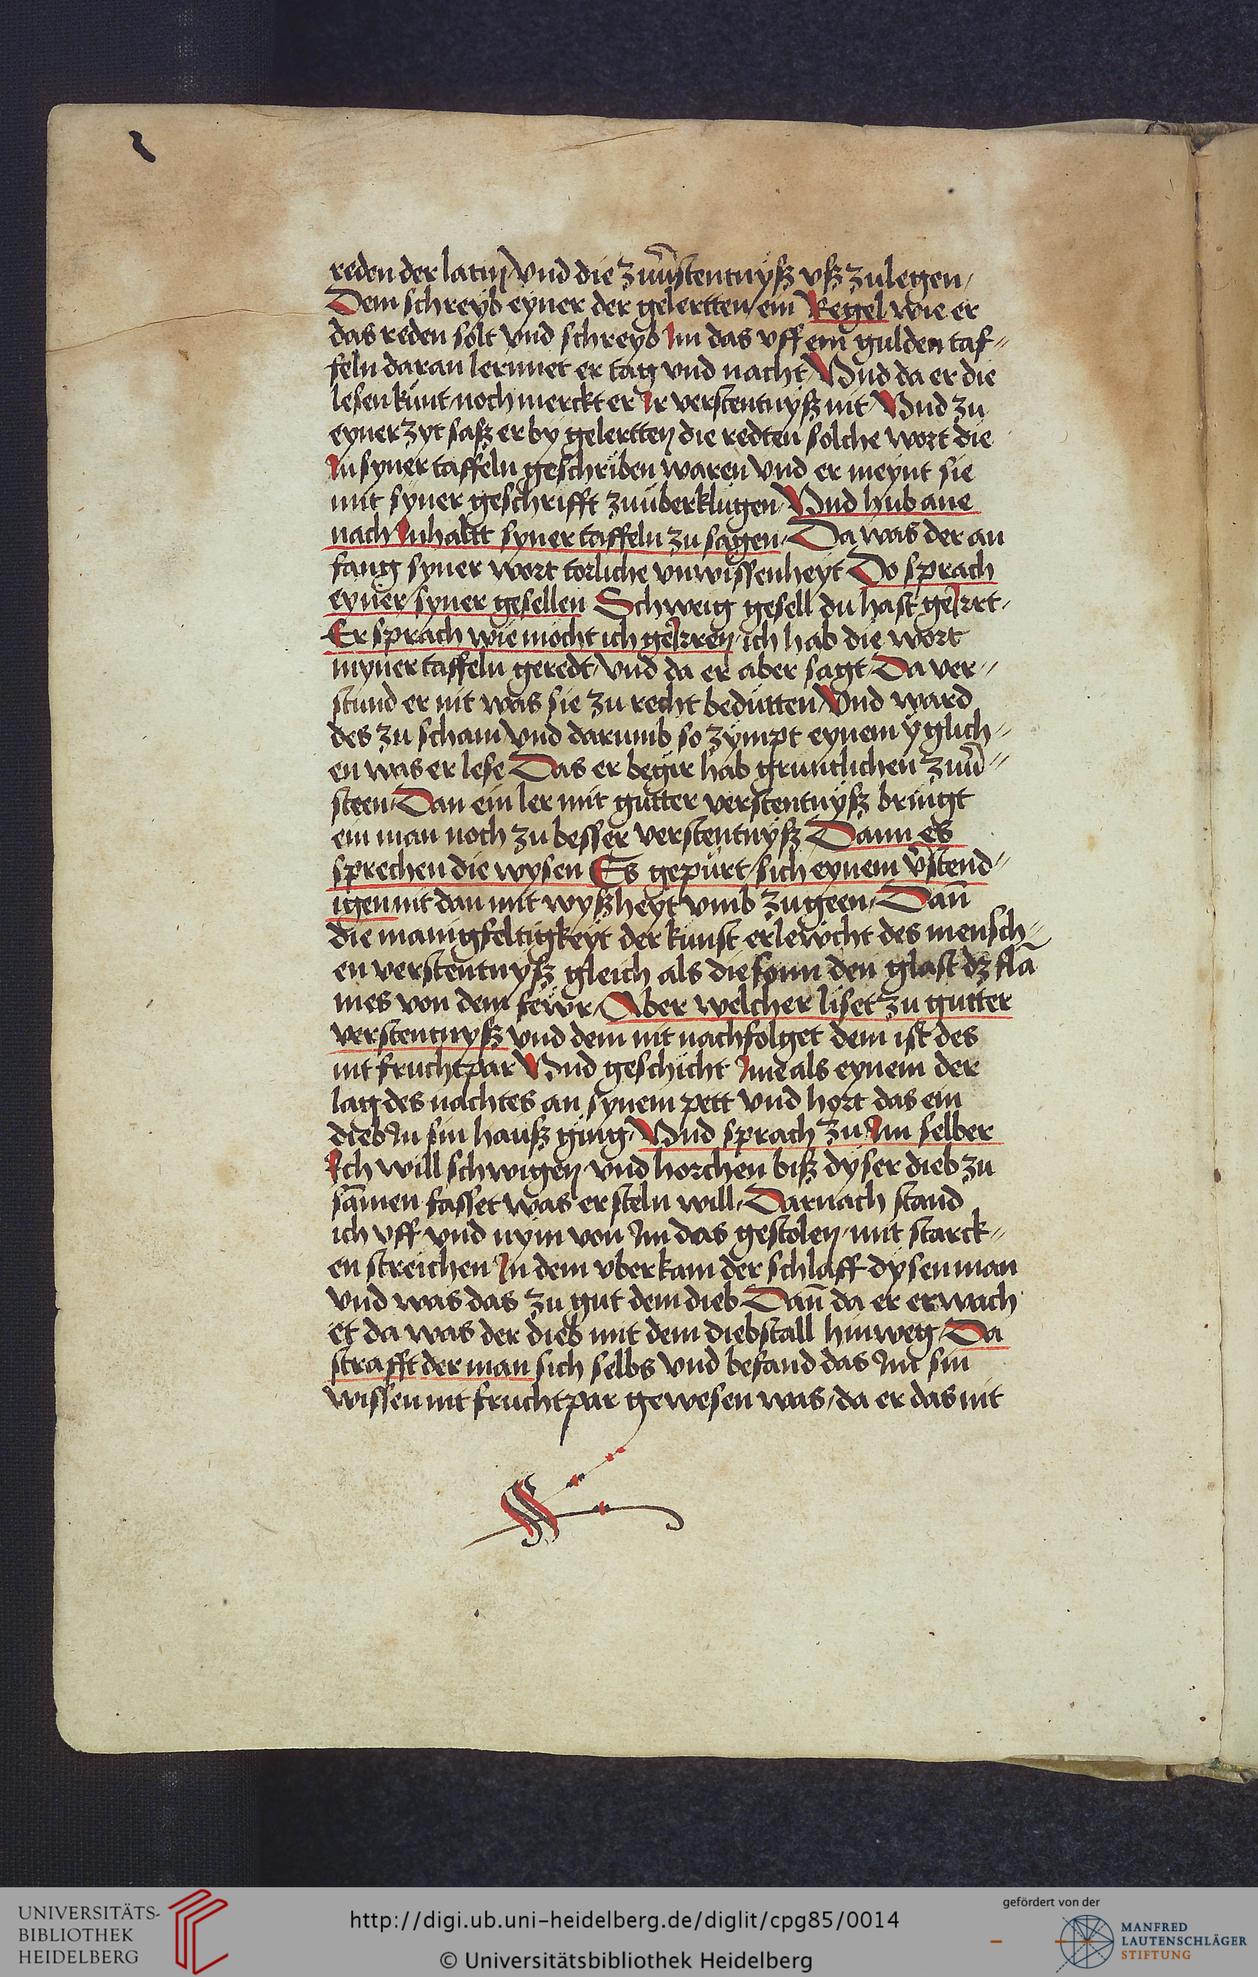 reden der latin vnd die zuuͦ̃stentnyß vß zu legen /
Dem schreyb eyner der gelertten / ein Regel wie er
das reden solt vnd schreyb Im das vff ein gulden taf=
feln daran lernnet er tag vnd nacht / Vnd da er die
lesen kunt / noch merckt er Ir verstentnyß nit / Vnd zu
eyner zyt saß er by gelertten die redten solche wort die
In syner taffeln geschriben waren vnd er meynt sie
mit syner geschrifft zu uberklugen / Vnd hub ane
nach Inhaltt syner taffeln zu sagen / Da was der an
fang syner wort torliche vnwissenheyt Do sprach
eyner / syner gesellen Schweig gesell du hast geIrrt /
Er sprach wie mocht ich geIrren / ich hab die wort
myner taffeln geredt / vnd da er aber sagt / Da ver=
stund er nit was sie zu recht bedutten / Vnd ward
des zu scham vnd darumb so zympt eynem yglich=
en was er lese Das er begir hab gruntlichen zuuͦ̃=
steen / Dan ein ler mit gutter verstentnyß bringt
ein man noch zu besser verstentnyß Dann es
sprechen die wysen Es gepurt / sich eynem v̈stend=
igen nit dan mit wyßheyt vmb zu geen / Dan̄
die manigfeltigkeyt der kunst erlewcht des mensch=
en verstentnyß gleich als die sonn den glast dz fla̅
mes von dem fewr / Aber welcher liset zu gutter
verstentnyß vnd dem nit nachfolget dem ist des
nit fruchtpar Vnd geschicht Ime als eynem der
lag des nachtes an synem pett vnd hort das ein
dieb In sin hauß ging / Vnd sprach zu Im selber
Ich will schwigen vnd horchen biß dyser dieb zu
sa̅men fasset was er steln will / Darnach stand
ich vff vnd nym von Im das gestolen / mit starck=
en streichen In dem vberkam der schlaff dysen man
vnd was das zu gut dem dieb Dan̄ da er erwach
et da was der dieb mit dem diebstall hinweg / Da
strafft der man sich selbs vnd befand das Im sin
wissen nit fruchtpar gewesen was / da er das nit
UNIVERSITÄTS-
BIBLIOTHEK
HEIDELBERG
http://digi.ub.uni-heidelberg.de/diglit/cpg85/0014
© Universitätsbibliothek Heidelberg
gefördert von der
MANFRED
LAUTENSCHLÄGER
STIFTUNG